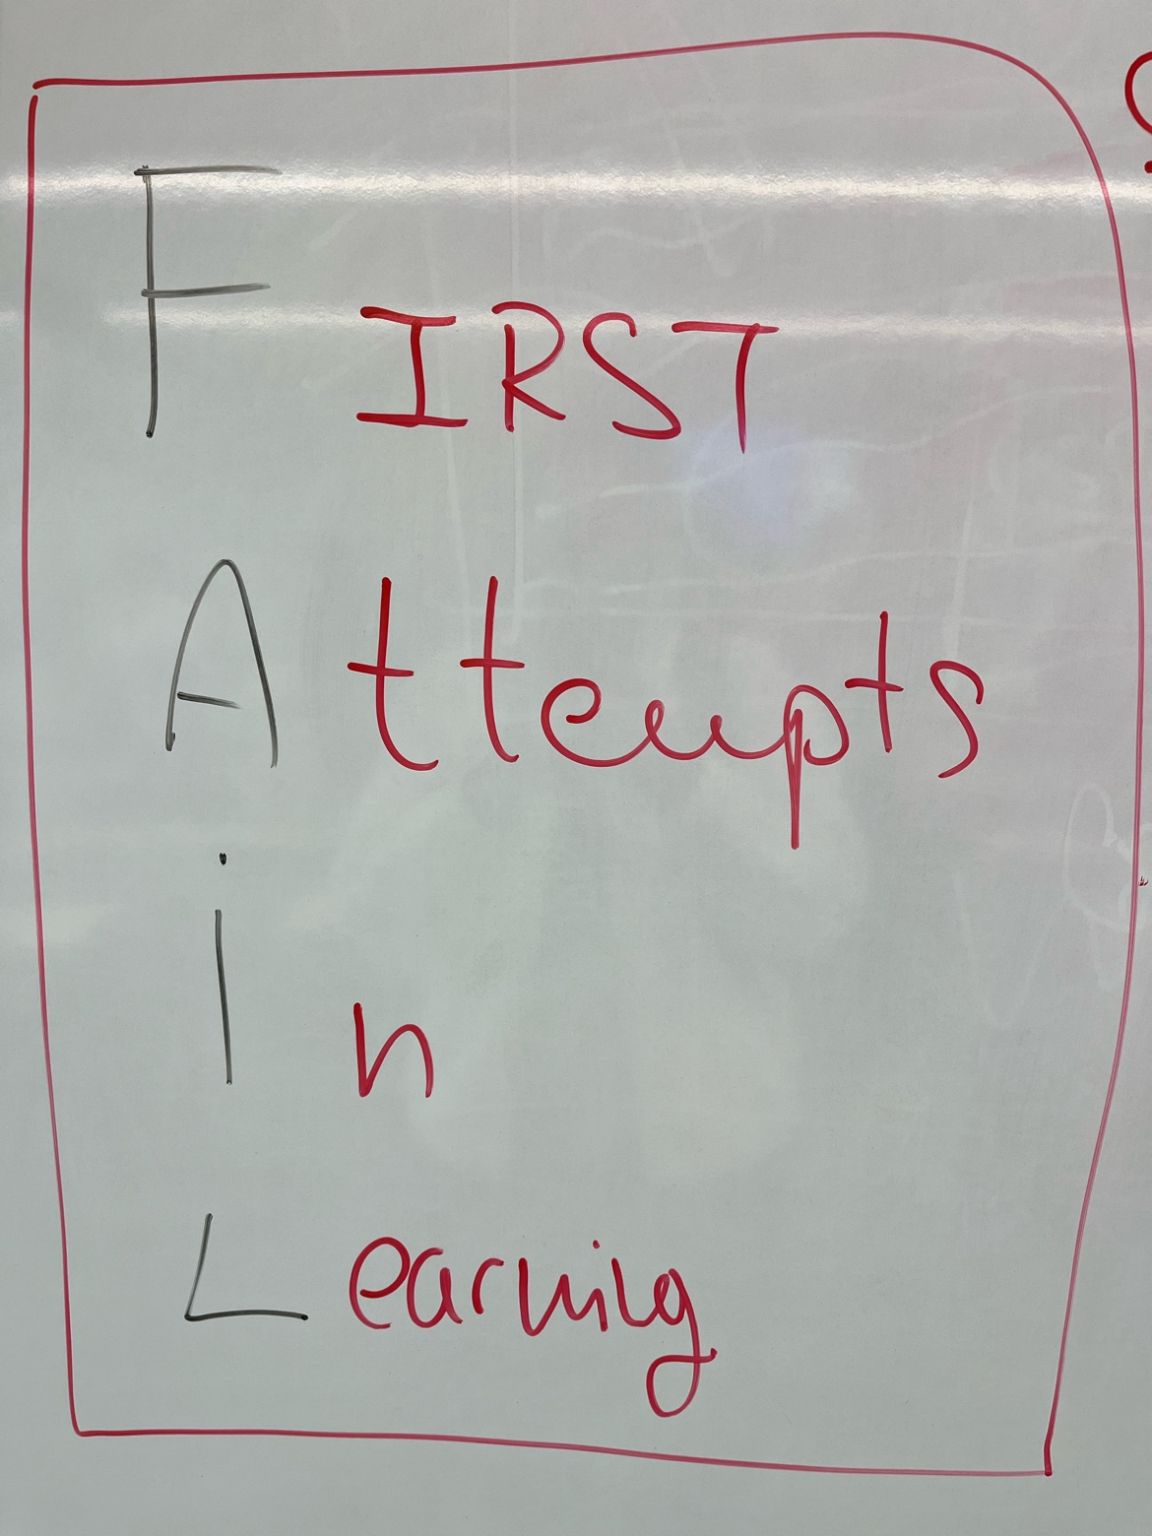 FIRST
Attempts
in
Learning